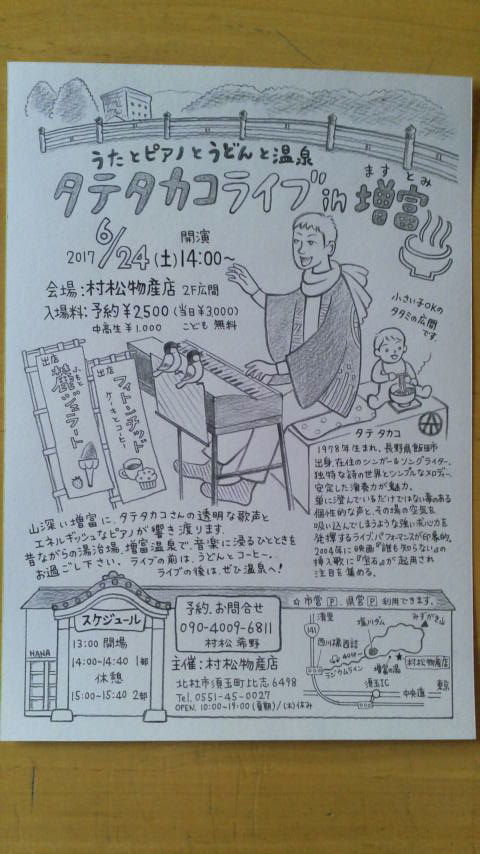 うたとピアノとうどんと温泉
ますとみ
タテタカコライブin増富
2017 6/24(土)14:00~
開演
会場:村松物産店 2F広間
入場料:予約¥2500(当日¥3000)
中高生¥1,000 こども 無料
小さい子OKの
タタミの広間
です
出店
ふもと
麓ジェラート
出店
フォト・シナッド
ケーキとコーヒー
タテ タカコ
1978年生まれ、長野県飯田市
出身、在住のシンガー&ソングライター。
独特な詩の世界とシンプルなメロディー、
安定した演奏力が魅力。
単に澄んでいるだけではない毒のある
個性的な声と、その場の空気を
吸い込んでしまうような強い求心力を
発揮するライブパフォマンスが印象的。
2004年に映画『誰も知らない』の
挿入歌に『宝石』が起用され
注目を集める。
山深い増富に、タテタカコさんの透明な歌声と
エネルギッシュなピアノが響き渡ります。
昔ながらの湯治場、増富温泉で、音楽に浸るひとときを
お過ごし下さい。ライブの前は、うどんとコーヒー、
ライブの後は、ぜひ温泉へ!
スケジュール
13:00 開場
14:00~14:40 1部
休憩
15:00~15:40 2部
HANA
予約、お問合せ
090-4009-6811
村松 希野
主催:村松物産店
北杜市須玉町比志6498
Tel. 0551-45-0027
OPEN. 10:00~19:00(夏期)/(木)休み
☆市営P 県営P利用できます。
清里
141
塩川ダム
みずがき山
西川橋西詰
40分
ラジウムライン
増富の湯
村松物産店
須玉IC
中央道
東京